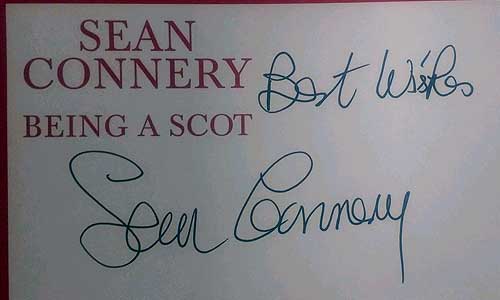 SEAN
CONNERY
Best Wishes
BEING A SCOT
Sean Connery